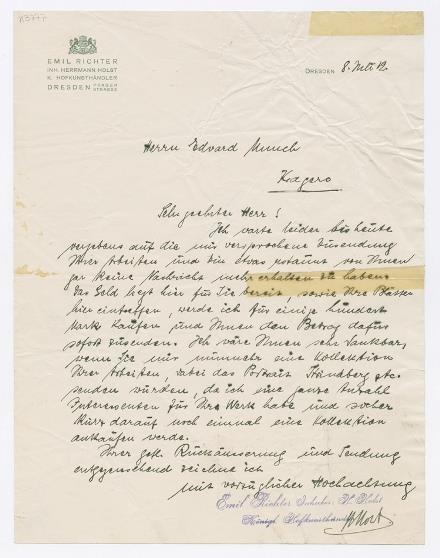 EMIL RICHTER
INH. HERRMANN HOLST
K. HOFKUNSTHÄNDLER
DRESDEN PRAGER STRASSE
DRESDEN 8. Juli 12.
Herrn Edvard Munch
Kragerö
Sehr geehrter Herr!
Ich warte leider bis heute
vergebens auf die mir versprochene Zusendung
Ihrer Arbeiten und bin etwas erstaunt von Ihnen
gar keine Nachricht mehr erhalten zu haben.
Das Geld liegt hier für Sie bereit, sowie Ihre Blätter
hier eintreffen, werde ich für einige hundert
Mark kaufen und Ihnen den Betrag dafür
sofort zusenden. Ich wäre Ihnen sehr dankbar,
wenn Sie mir nunmehr eine Kollektion
Ihrer Arbeiten, dabei das Portrait Strindberg etc.
senden würden, da ich eine ganze Anzahl
Interessenten für Ihre Werke habe und sicher
kurz darauf noch einmal eine Kollektion
ankaufen werde.
Ihrer gefl. Rückäusserung und Sendung
entgegensehend zeichne ich
mit vorzüglicher Hochachtung
Emil Richter Inhaber H. Holst
Königl. Hofkunsthandl.
HHolst